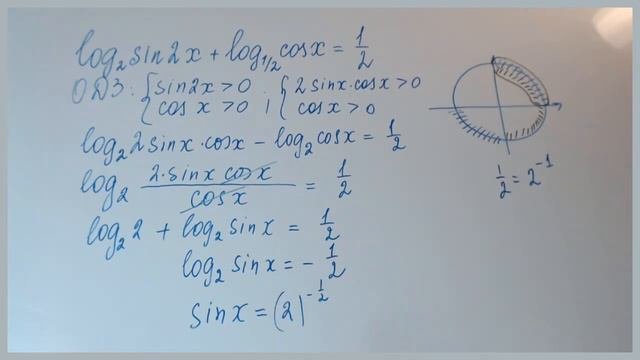 log₂sin2x + log₁/₂cosx = 1/2
ОДЗ: { sin2x > 0 ; { 2sinx·cosx > 0
{ cos x > 0 ; { cosx > 0
log₂2sinx·cosx − log₂cosx = 1/2
log₂ (2·sinx cosx)/(cosx) = 1/2
1/2 = 2⁻¹
log₂2 + log₂sinx = 1/2
log₂sinx = − 1/2
sinx = (2)^(-1/2)